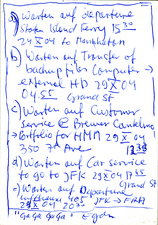 a) Warten auf departure
Staten Island Ferry 15 30
29 X 04 to Manhattan
b) Warten auf Transfer of
backup files Computer →
external HD 29 X 04
04 55 Grand St
c) Warten auf Customer
Service @ Brewer Cantelmo
Portfolio for HMA 29 X 04
350 7th Ave 12 38
d) Warten auf Car Service
to go to JFK 29 X 04 17 55
Grand St
e) Warten auf Departure
Lufthansa 405
29 X 04 20 JFK → FRA
"gaga goga"